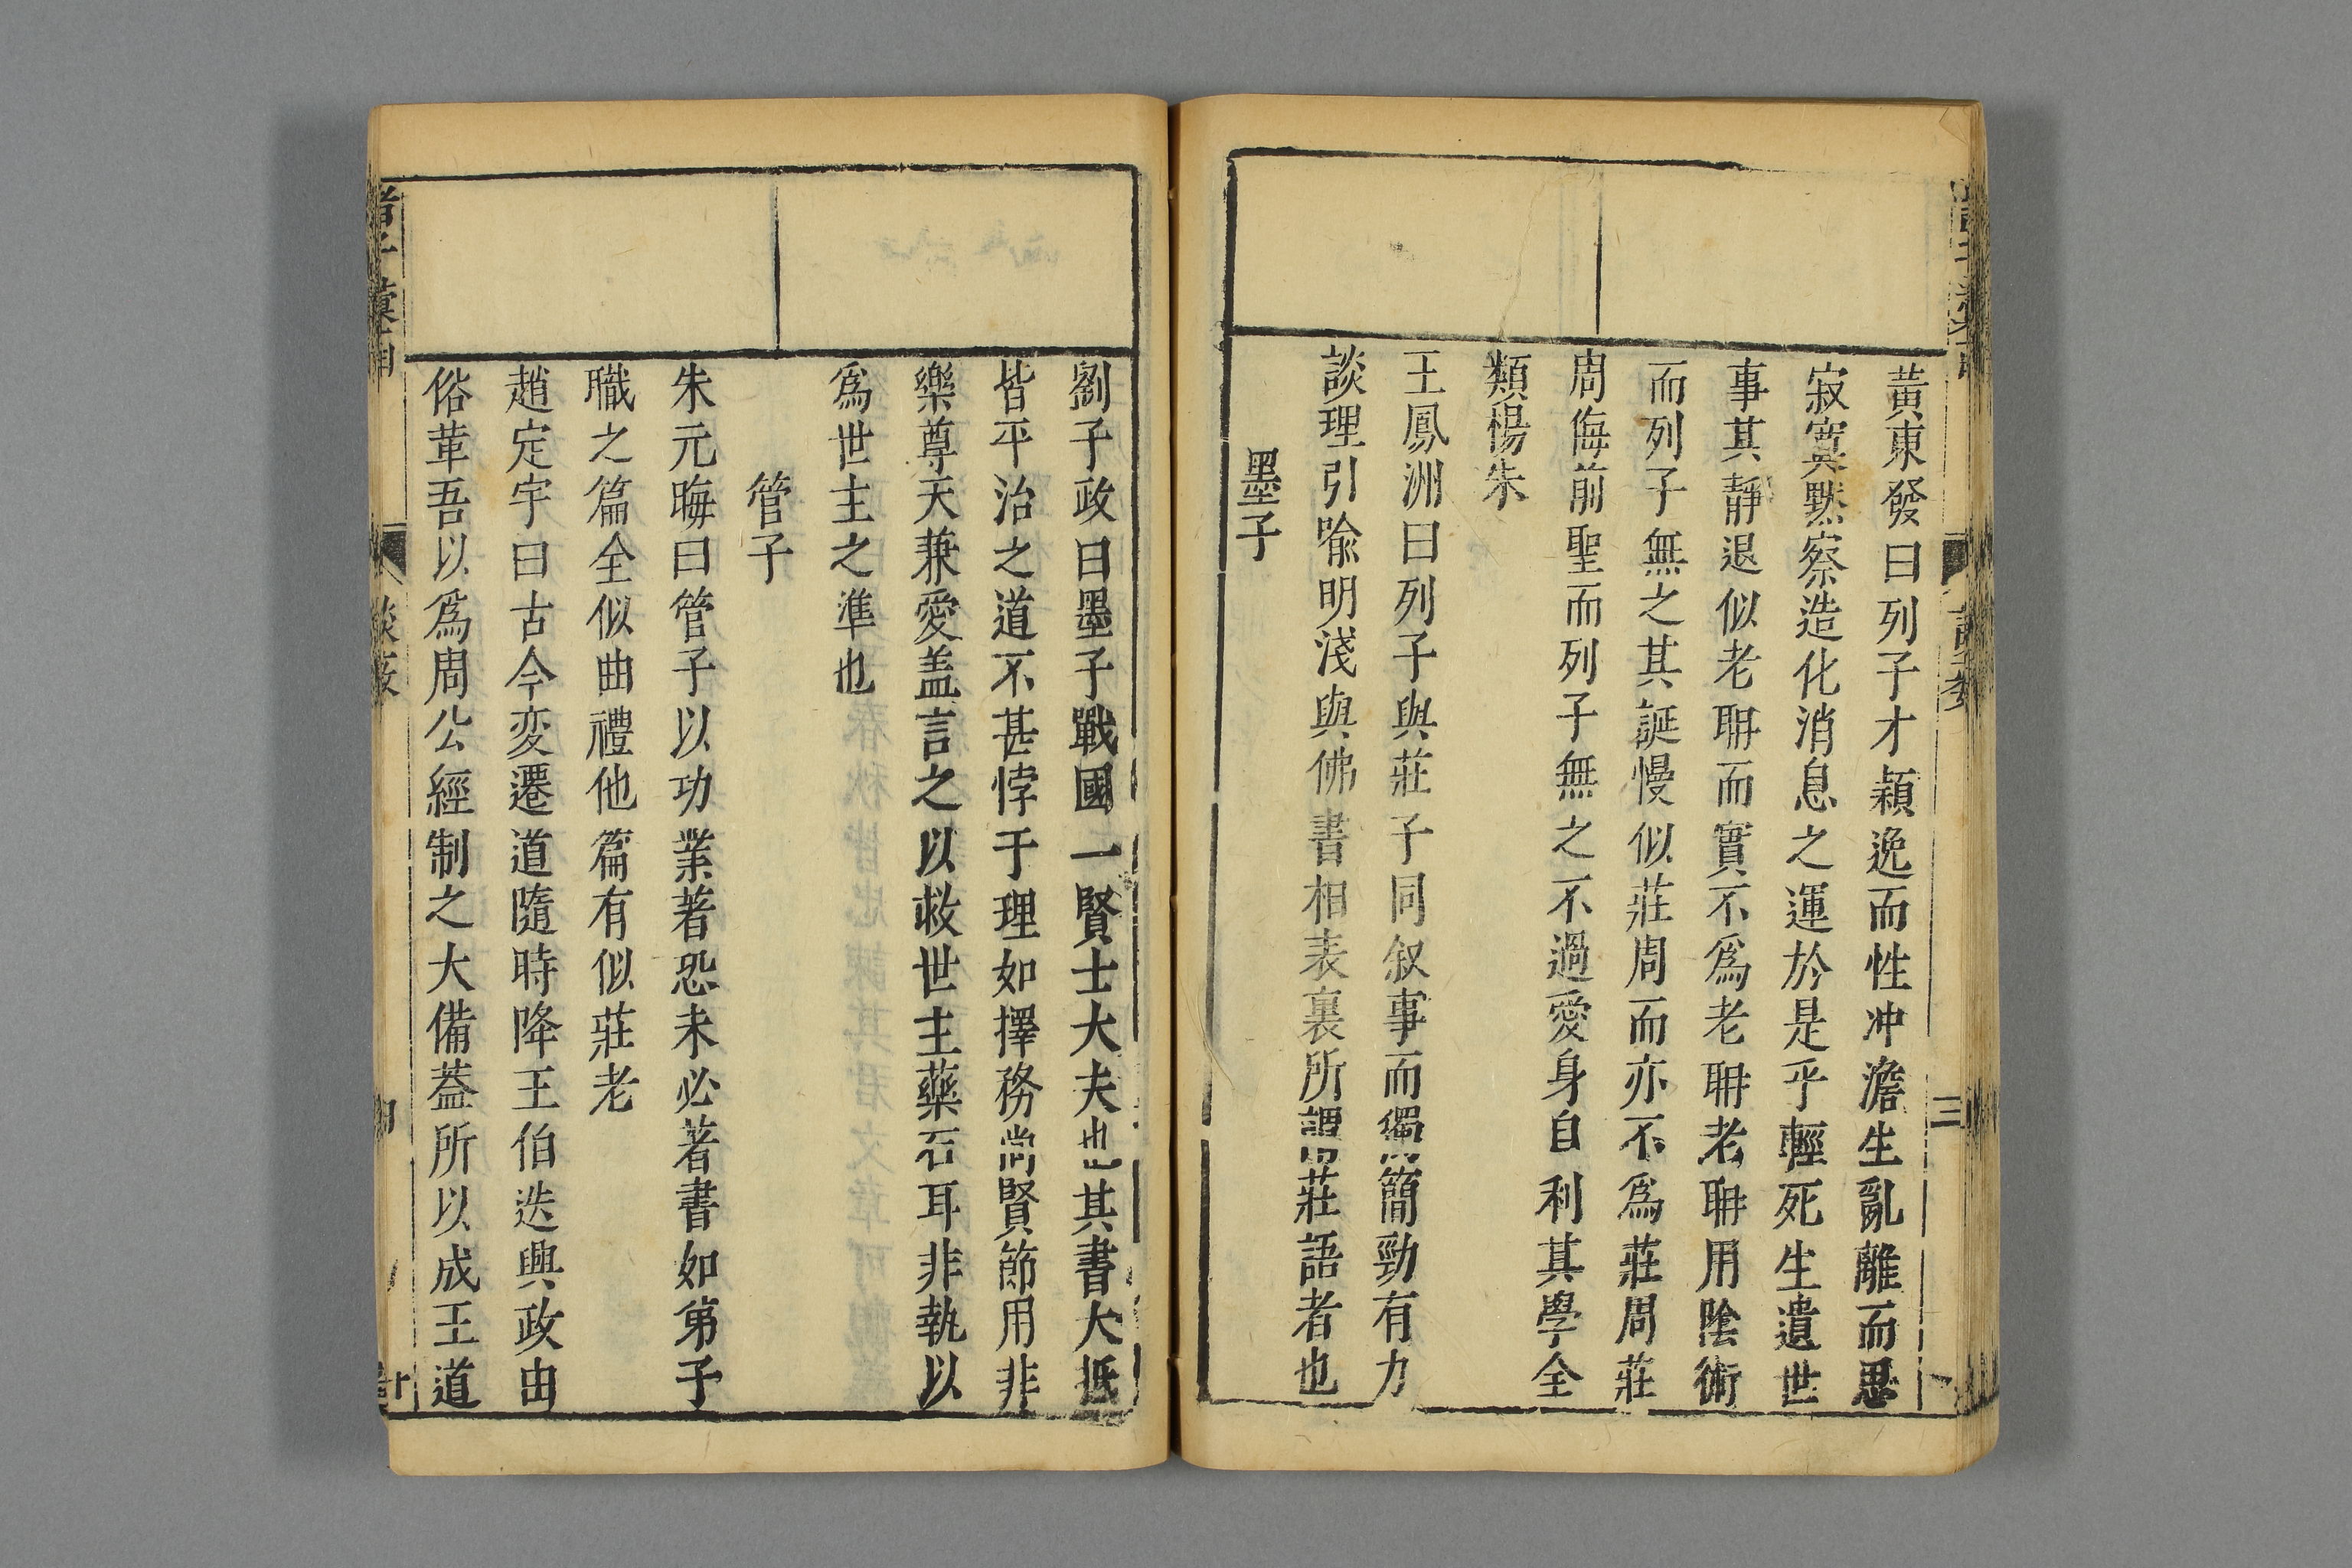 黃東發曰列子才穎逸而性冲澹生亂離而思
寂寞黙察造化消息之運於是乎輕死生遺世
事其靜退似老聃而實不爲老聃老聃用陰術
而列子無之其誕慢似莊周而亦不爲莊周莊
周侮前聖而列子無之不過愛身自利其學全
類楊朱
王鳳洲曰列子與莊子同叙事而獨簡勁有力
談理引喻明淺與佛書相表裏所謂莊語者也
墨子
三
劉子政曰墨子戰國一賢士大夫也其書大抵
皆平治之道不甚悖于理如擇務尚賢節用非
樂尊天兼愛盖言之以救世主藥石耳非執以
爲世主之準也
管子
朱元晦曰管子以功業著恐未必著書如第子
職之篇全似曲禮他篇有似莊老
趙定宇曰古今变遷道隨時降王伯迭興政由
俗革吾以爲周公經制之大備葢所以成王道